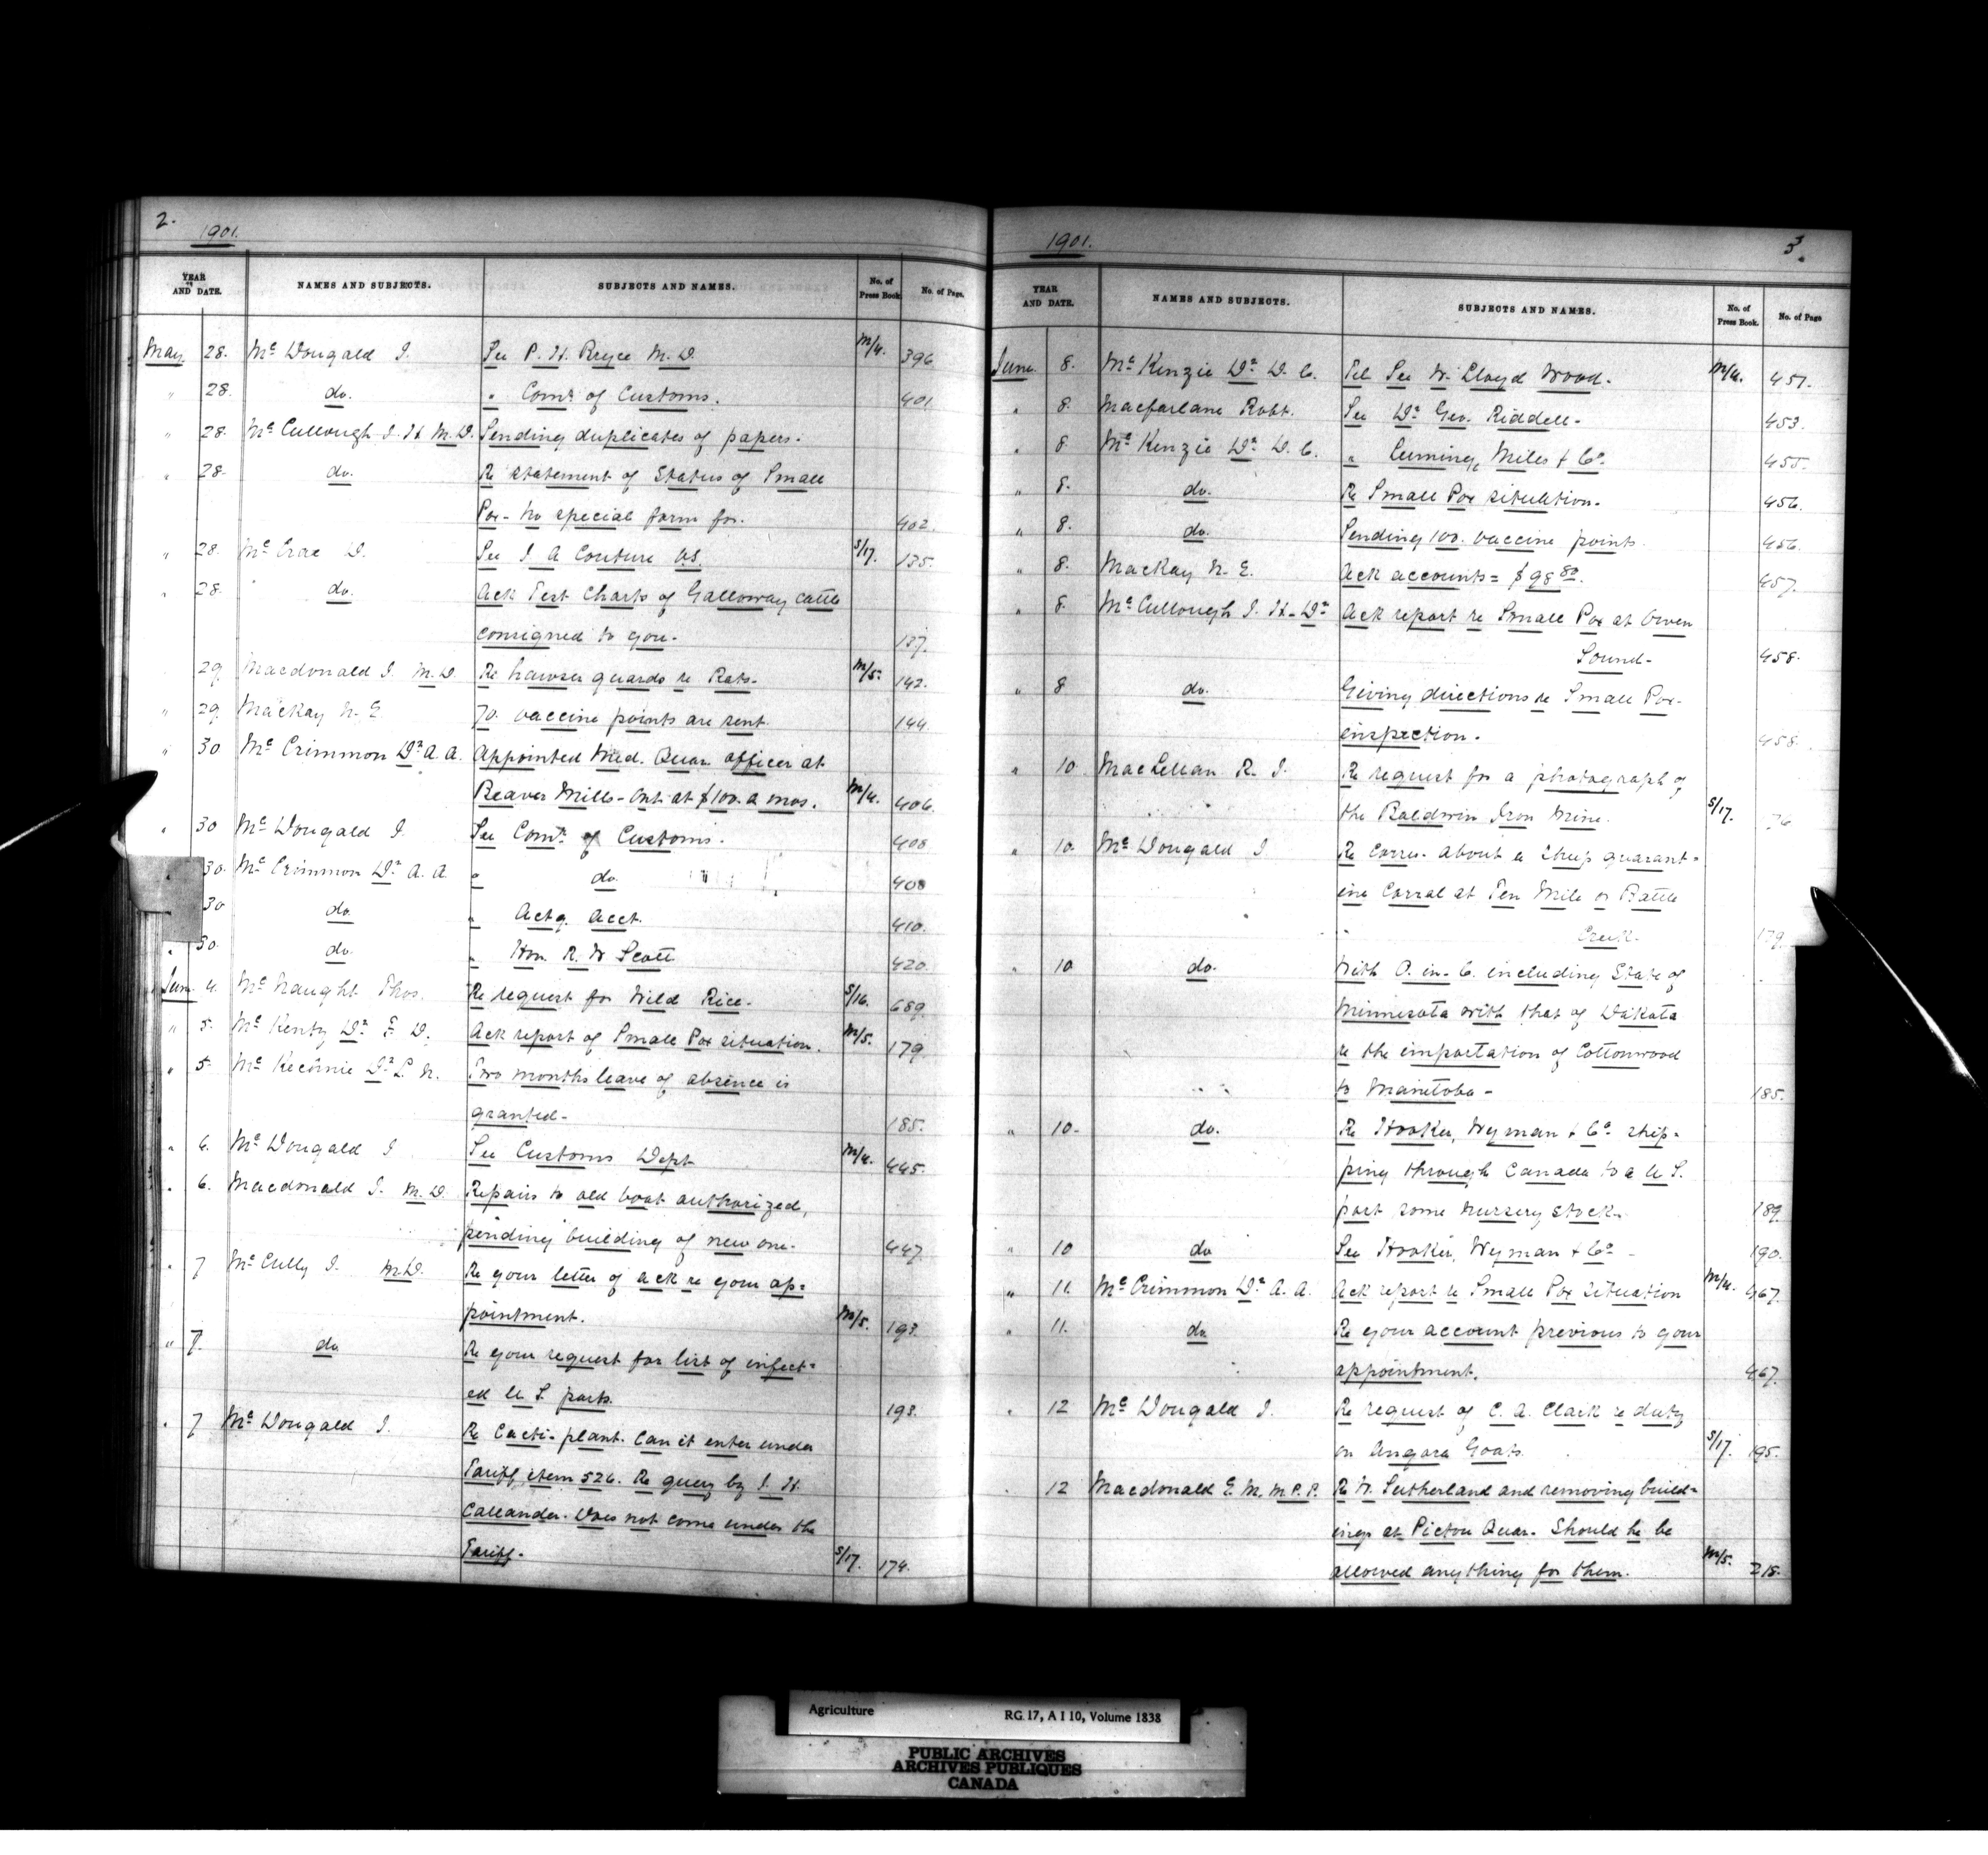 2.
1901.
YEAR AND DATE. NAMES AND SUBJECTS. SUBJECTS AND NAMES. No. of Press Book. No. of Page.
May 28. Mc Dougald J. See P. H. Bryce M.D. M/4. 396
" 28. do. " Comr of Customs. 401
" 28. Mc Cullough J. H. M.D. Sending duplicates of papers.
" 28. do. Re statement of Status of Small
Pox - no special form for. 402.
" 28. Mc Crae D. See J A Couture V.S. S/17. 135.
" 28. do. Ack Test Charts of Galloway cattle
consigned to you. 137.
29. Macdonald J. M.D. Re hawser guards re Rats. M/5. 142.
" 29. MacKay N. E 70. vaccine points are sent. 144
" 30 Mc Crimmon Dr A. A. Appointed Med. Quar. officer at
Beaver Mills - Ont. at $100. a mos. M/4. 406.
" 30 Mc Dougald J. See Comr of Customs. 408
30. Mc Crimmon Dr A. A. " do. 408
30 do. " Actg. Acct. 410.
" 30 do. " Hon. R. W Scott 420.
June 4. Mc Naught Thos. Re request for Wild Rice. S/16. 689.
" 5. Mc Kenty Dr F. D. Ack report of Small Pox situation. M/5. 179
" 5. Mc Kechnie Dr L. N. Two months leave of absence is
granted - 185.
" 6. Mc Dougald J See Customs Dept M/4. 445.
" 6. Macdonald J. M.D. Repairs to old boat authorized,
pending building of new one. 447.
" 7 Mc Cully J. M.D. Re your letter of ack re your ap=
pointment. M/5. 193.
" 7. do Re your request for list of infect=
ed U. S. ports. 193.
" 7 Mc Dougald J. Re Cacti-plant. Can it enter under
Tariff item 526. Re query by J. H.
Callander. Does not come under the
Tariff. S/17. 174.
1901. 3.
YEAR AND DATE. NAMES AND SUBJECTS. SUBJECTS AND NAMES. No. of Press Book. No. of Page
June 8. Mc Kenzie Dr D. C. Tel See W. Lloyd Wood. M/4. 451.
" 8. Macfarlane Robt. See Dr Geo. Riddell. 453.
" 8 Mc Kenzie Dr D. C. " Cuming, Miles & Co. 455.
" 8. do. Re Small Pox situation. 456.
" 8. do. Sending 100. vaccine points. 456.
" 8. MacKay N. E. Ack accounts = $98 80. 457.
" 8. Mc Cullough J. H. Dr Ack report re Small Pox at Owen
Sound. 458.
" 8 do. Giving directions re Small Pox.
inspection. 458.
" 10. MacLellan R. J. Re request for a photograph of
the Baldwin Iron Mine. S/17.
" 10. Mc Dougald J Re corres. about a sheep quarant=
ine Corral at Ten Mile or Battle
Creek. 179.
" 10 do. With O. in. C. including State of
Minnesota with that of Dakota
re the importation of Cottonwood
to Manitoba - 185.
" 10. do. Re Hooker, Wyman & Co. ship=
ping through Canada to a U. S.
port some nursery stock. 189.
" 10 do See Hooker, Wyman & Co. 190.
" 11. Mc Crimmon Dr A. A. Ack report re Small Pox situation M/4. 467.
" 11. do. Re your account previous to your
appointment. 467.
" 12 Mc Dougald J. Re request of C. A. Clark re duty
on Angora Goats. S/17. 195.
12 Macdonald E. M. M.P.P. Re W. Sutherland and removing build=
ings at Pictou Quar. Should he be
allowed anything for them. M/5. 215.
Agriculture RG 17, A I 10, Volume 1838
PUBLIC ARCHIVES
ARCHIVES PUBLIQUES
CANADA